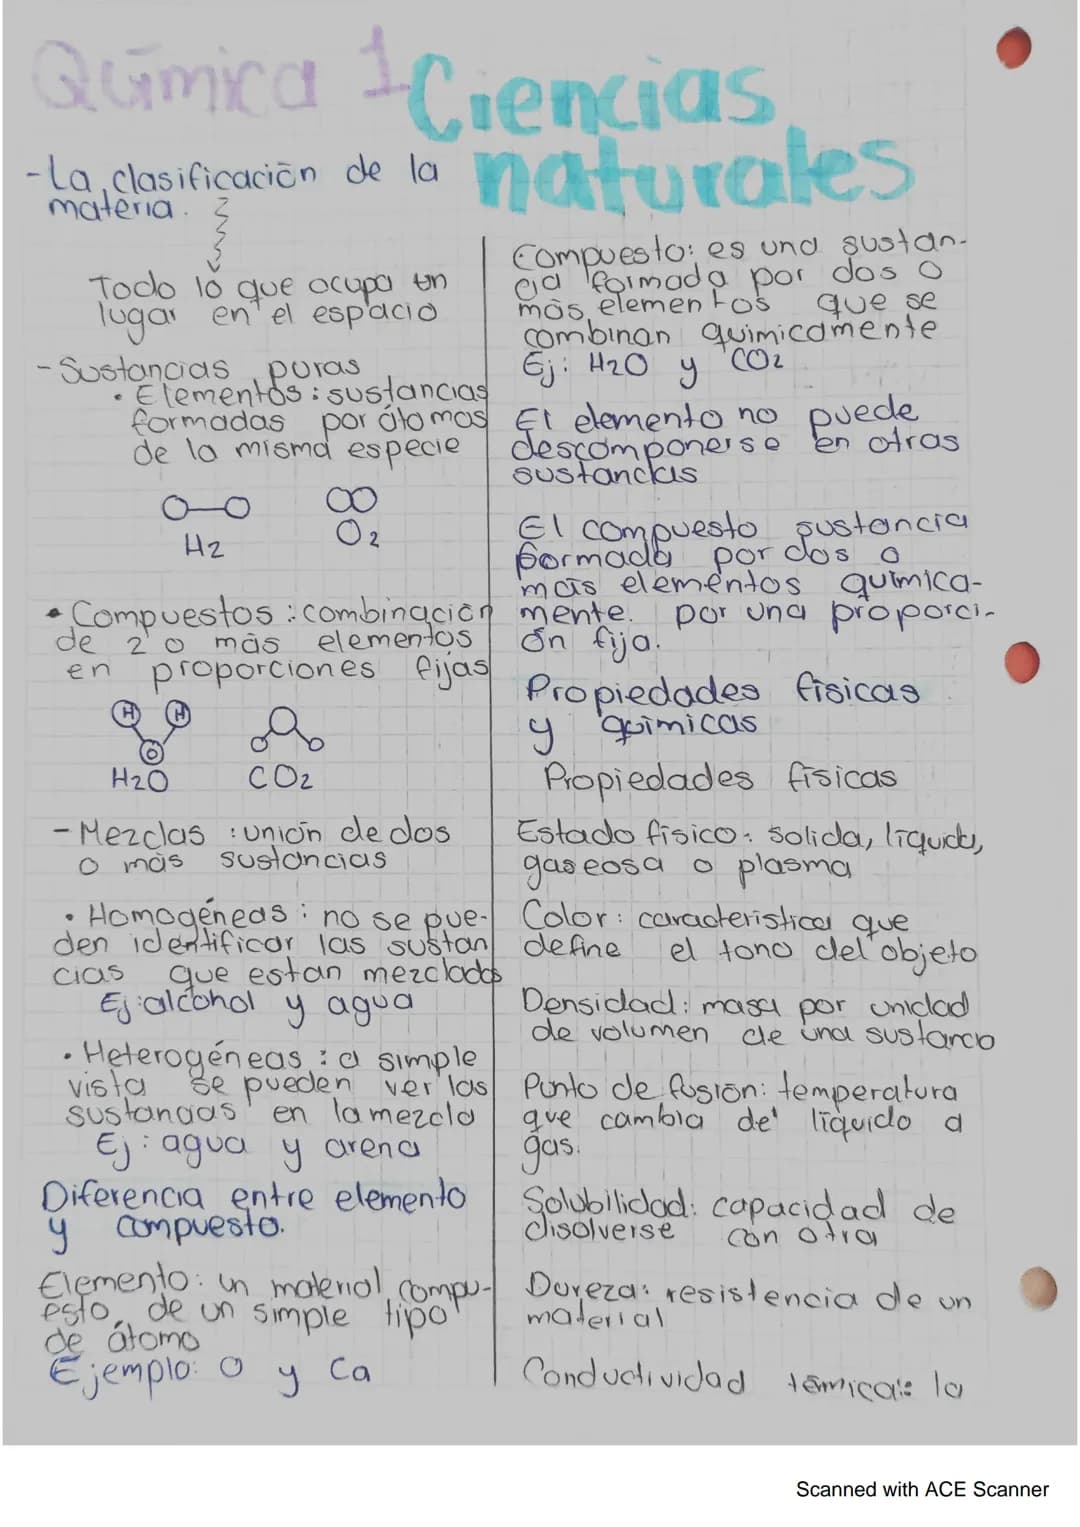 Química 1
Ciencias
naturales
- La clasificación de la
materia.
Todo lo que ocupa un
lugar en el espacio
- Sustancias puras
• Elementos: sustancias
formadas por átomos
de la misma especie
H2
O2
• Compuestos: combinación
de 2 o más elementos
en proporciones fijas
H H
O
H2O
CO2
- Mezclas: unión de dos
o más sustancias
• Homogéneas: no se pue-
den identificar las sustan
cias que estan mezclados
Ej: alcohol y agua
• Heterogéneas: a simple
vista se pueden ver las
sustancias en la mezcla
Ej: agua y arena
Diferencia entre elemento
y compuesto.
Elemento: un material compu-
esto de un simple tipo
de átomo
Ejemplo: O y Ca
Compuesto: es una sustan-
cia formada por dos o
más elementos que se
combinan quimicamente
Ej: H2O y CO2
El elemento no puede
descomponerse en otras
sustancias
El compuesto sustancia
formada por dos o
más elementos química-
mente. por una proporci-
ón fija.
Propiedades físicas
y químicas
Propiedades físicas
Estado físico: solida, líquida,
gaseosa o plasma
Color: caracteristica que
define el tono del objeto
Densidad: masa por unidad
de volumen de una sustanc
Punto de fusión: temperatura
que cambia de líquido a
gas.
Solubilidad: capacidad de
disolverse con otra
Dureza: resistencia de un
material
Conductividad témica: la
Scanned with ACE Scanner